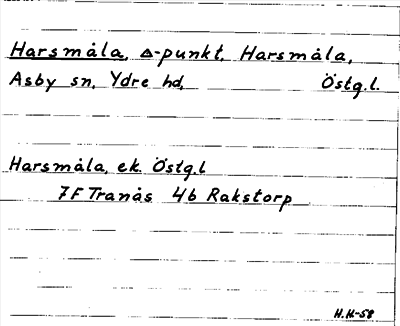 Harsmåla, Δ-punkt, Harsmåla,
Asby sn, Ydre hd, Östg.l.
Harsmåla, ek. Östg.l
7F Tranås 4b Rakstorp
H.H-58